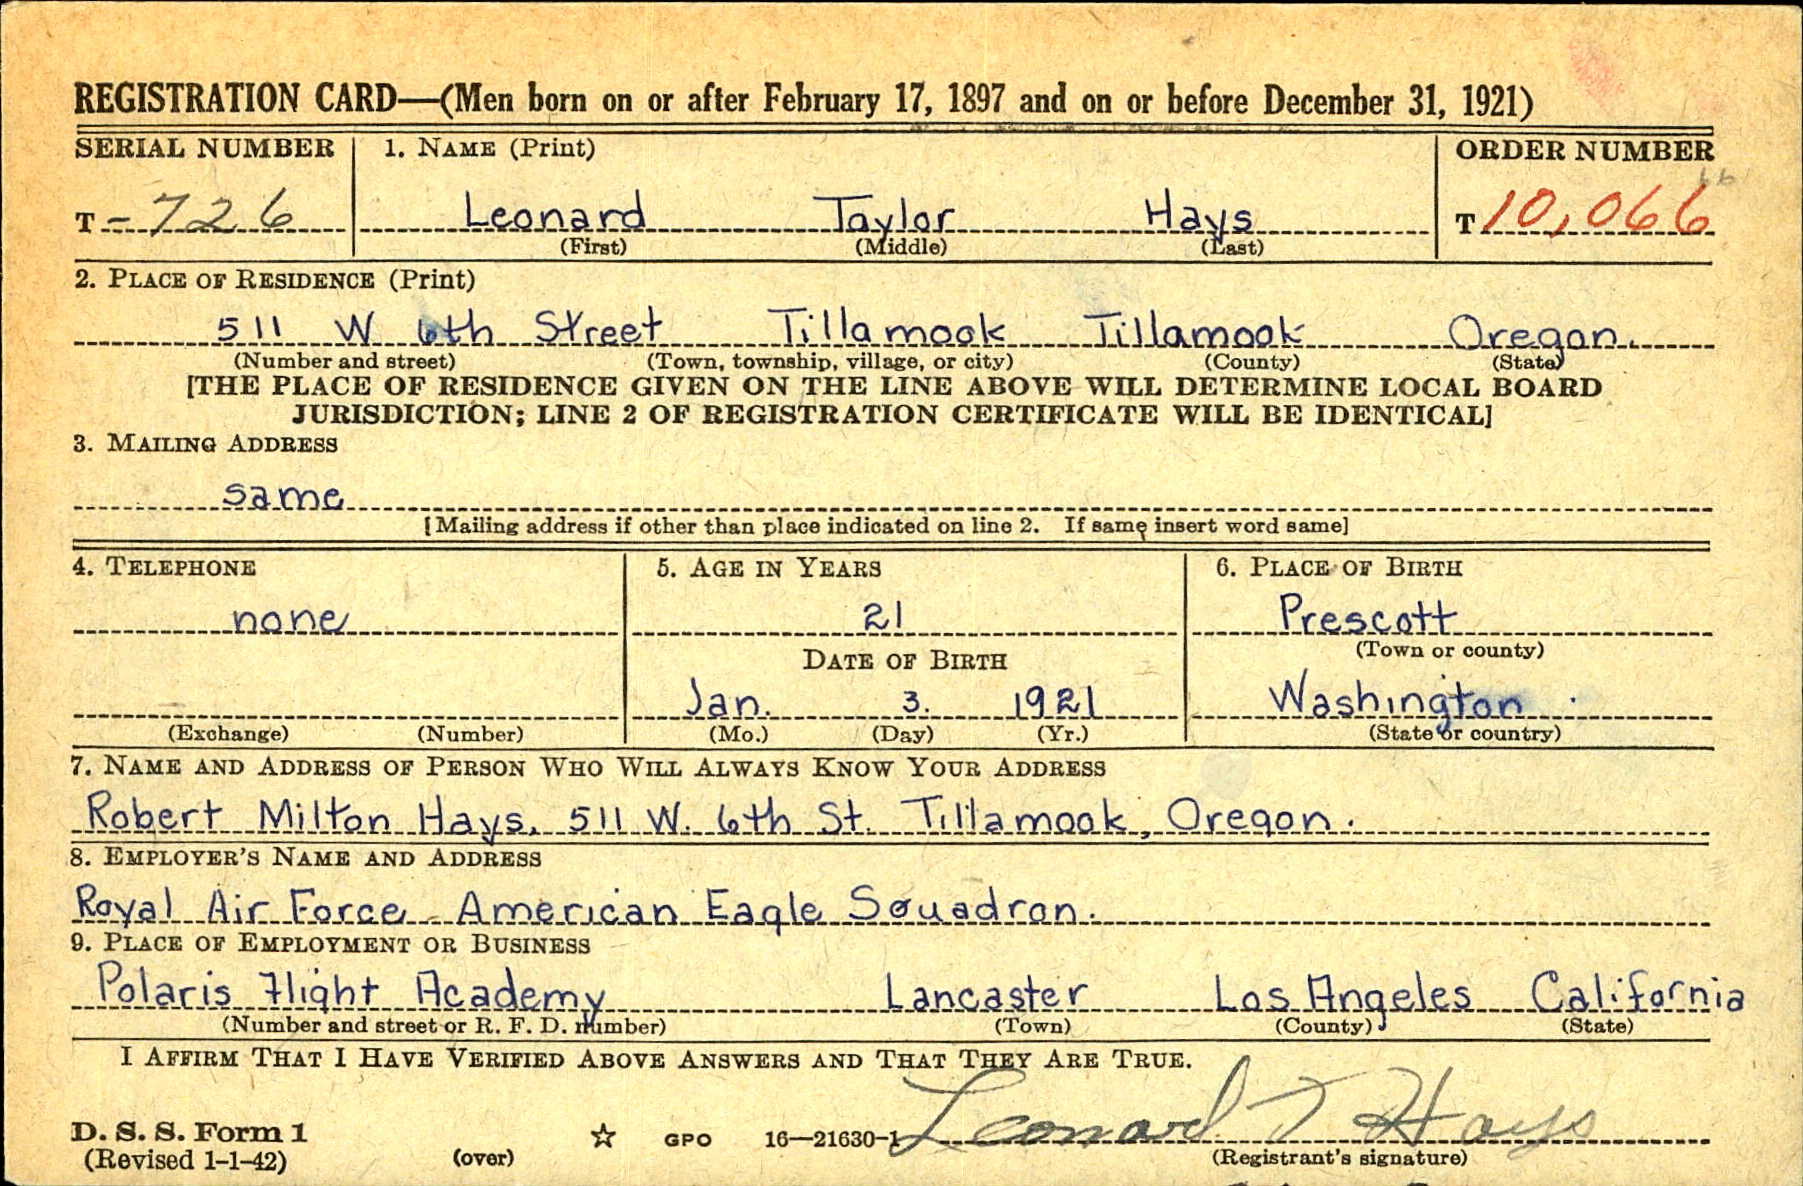 REGISTRATION CARD—(Men born on or after February 17, 1897 and on or before December 31, 1921)
SERIAL NUMBER 1. NAME (Print) ORDER NUMBER
T - 726 Leonard Taylor Hays T 10,066
(First) (Middle) (Last)
2. PLACE OF RESIDENCE (Print)
511 W 6th Street Tillamook Tillamook Oregon.
(Number and street) (Town, township, village, or city) (County) (State)
[THE PLACE OF RESIDENCE GIVEN ON THE LINE ABOVE WILL DETERMINE LOCAL BOARD
JURISDICTION; LINE 2 OF REGISTRATION CERTIFICATE WILL BE IDENTICAL]
3. MAILING ADDRESS
same
[Mailing address if other than place indicated on line 2. If same insert word same]
4. TELEPHONE 5. AGE IN YEARS 6. PLACE OF BIRTH
none 21 Prescott
(Town or county)
DATE OF BIRTH
Jan. 3. 1921 Washington
(Exchange) (Number) (Mo.) (Day) (Yr.) (State or country)
7. NAME AND ADDRESS OF PERSON WHO WILL ALWAYS KNOW YOUR ADDRESS
Robert Milton Hays, 511 W. 6th St. Tillamook, Oregon.
8. EMPLOYER'S NAME AND ADDRESS
Royal Air Force - American Eagle Squadron.
9. PLACE OF EMPLOYMENT OR BUSINESS
Polaris Flight Academy Lancaster Los Angeles California
(Number and street or R. F. D. number) (Town) (County) (State)
I AFFIRM THAT I HAVE VERIFIED ABOVE ANSWERS AND THAT THEY ARE TRUE.
Leonard T Hays
D. S. S. Form 1
(Revised 1-1-42) (over) ☆ GPO 16—21630-1 (Registrant's signature)